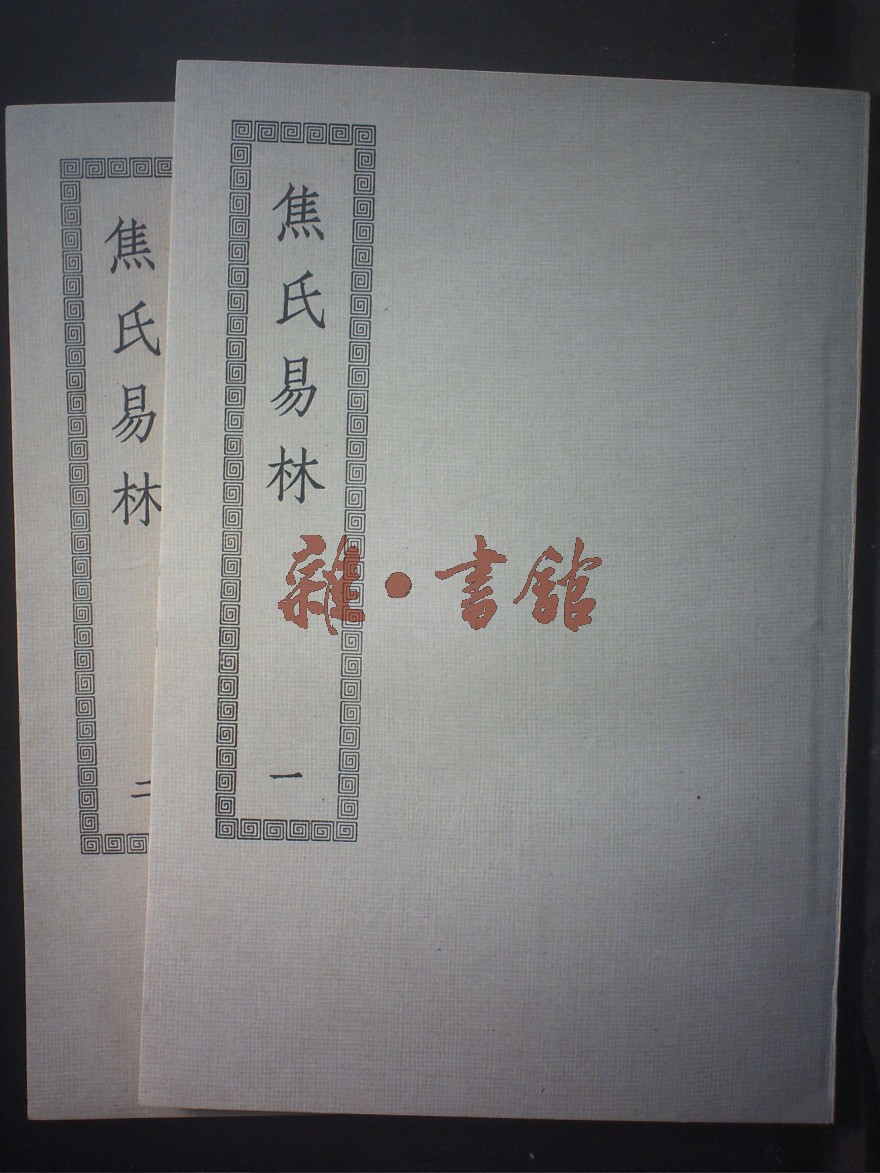 焦氏易林
一
焦氏易林
二
雜·書館